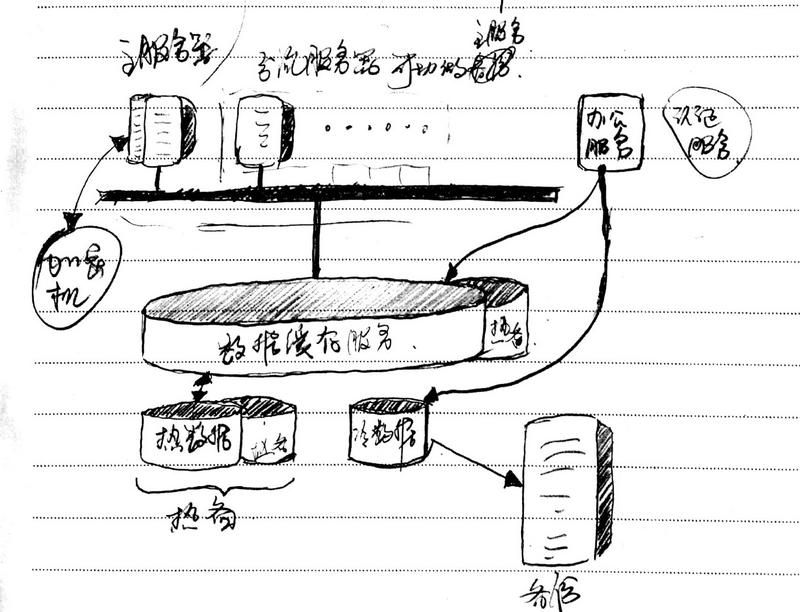 主服务器
分流服务器 可切换
主服务
办公
服务
认证
服务
加密
机
数据缓存服务
热备
热数据
热备
冷数据
热备
备份